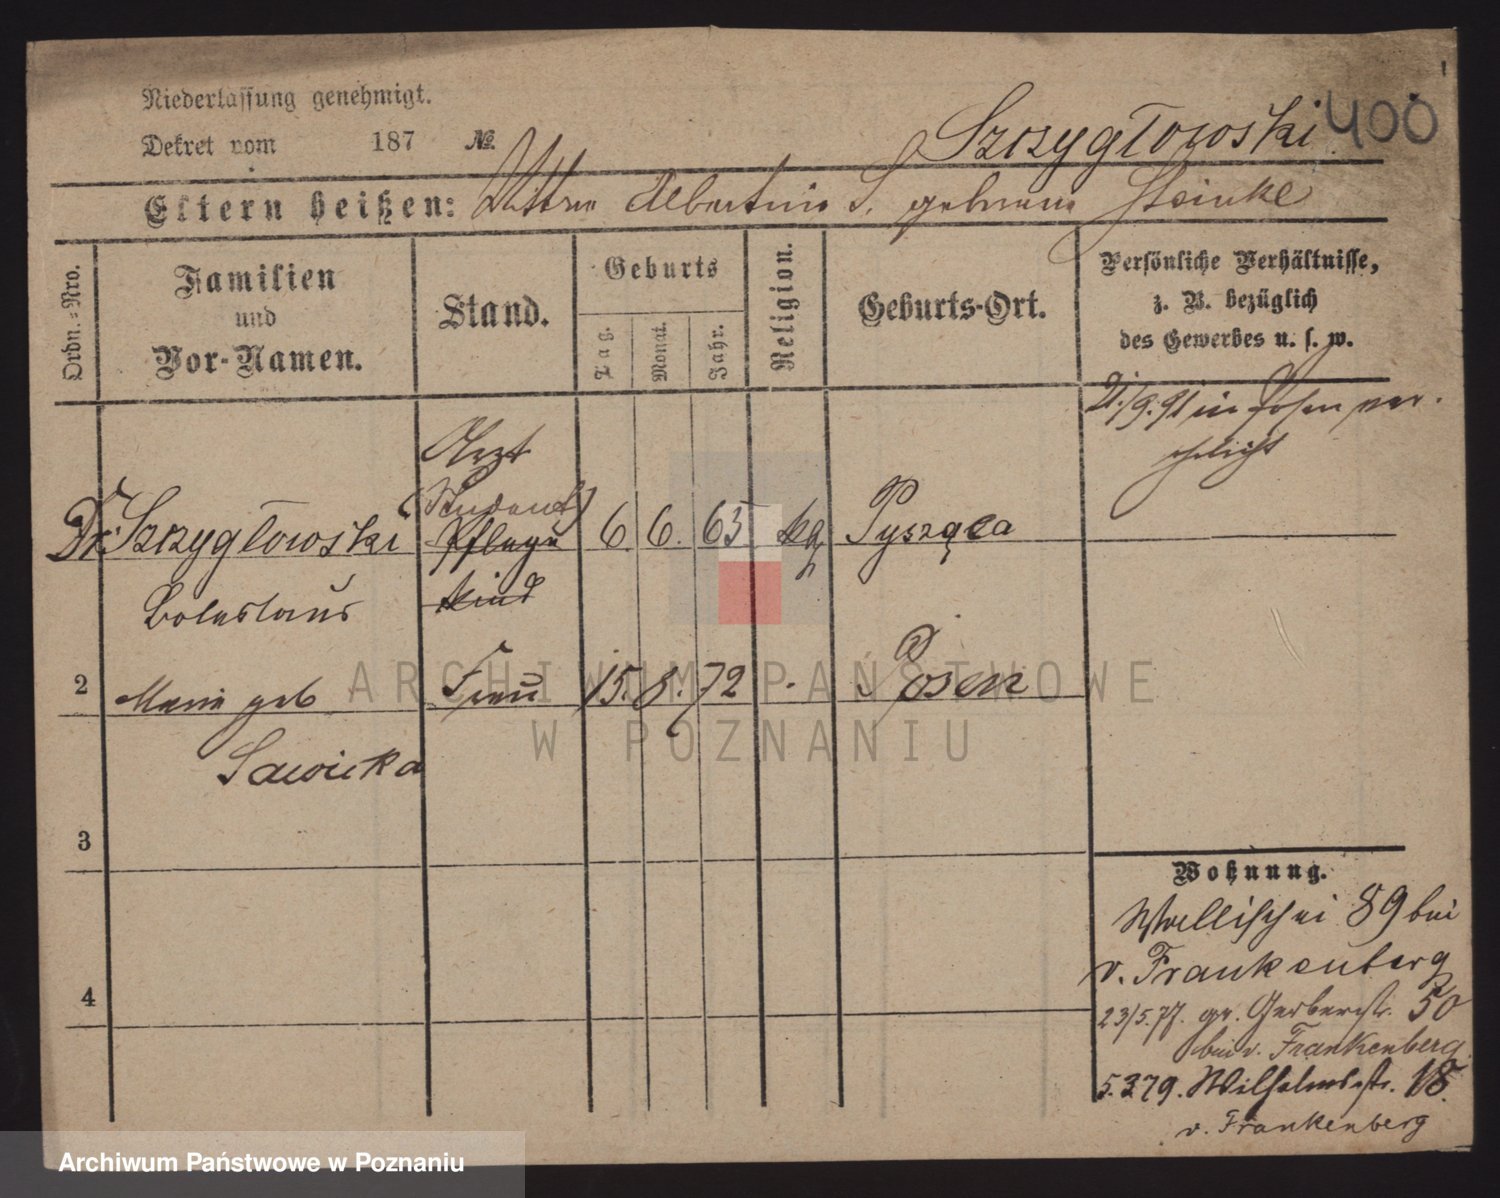 Niederlassung genehmigt.
Dekret vom 187 №
Szczygłowski 400
Eltern heißen: Albertine S. geborene Steinke
Ordn.=Nro.
Familien
und
Vor-Namen.
Stand.
Geburts
Tag.
Monat.
Jahr.
Religion.
Geburts-Ort.
Persönliche Verhältnisse,
z. B. bezüglich
des Gewerbes u. s. w.
21./9.91 in Posen ver.
ehelicht
Arzt
(Student)
Dr. Szczygłowski Pflege 6. 6. 65 kg Pysząca
Boleslaus kind
2 Marie geb Frau 15. 8. 72 Posen
Sawicka
3
4
Wohnung.
Wallischei 89 bei
v. Frankenberg
23/5.77. gr. Gerberstr. 50
bei v. Frankenberg
5.3.79. Wilhelmsstr. 18.
v. Frankenberg
ARCHIWUM PAŃSTWOWE
W POZNANIU
Archiwum Państwowe w Poznaniu